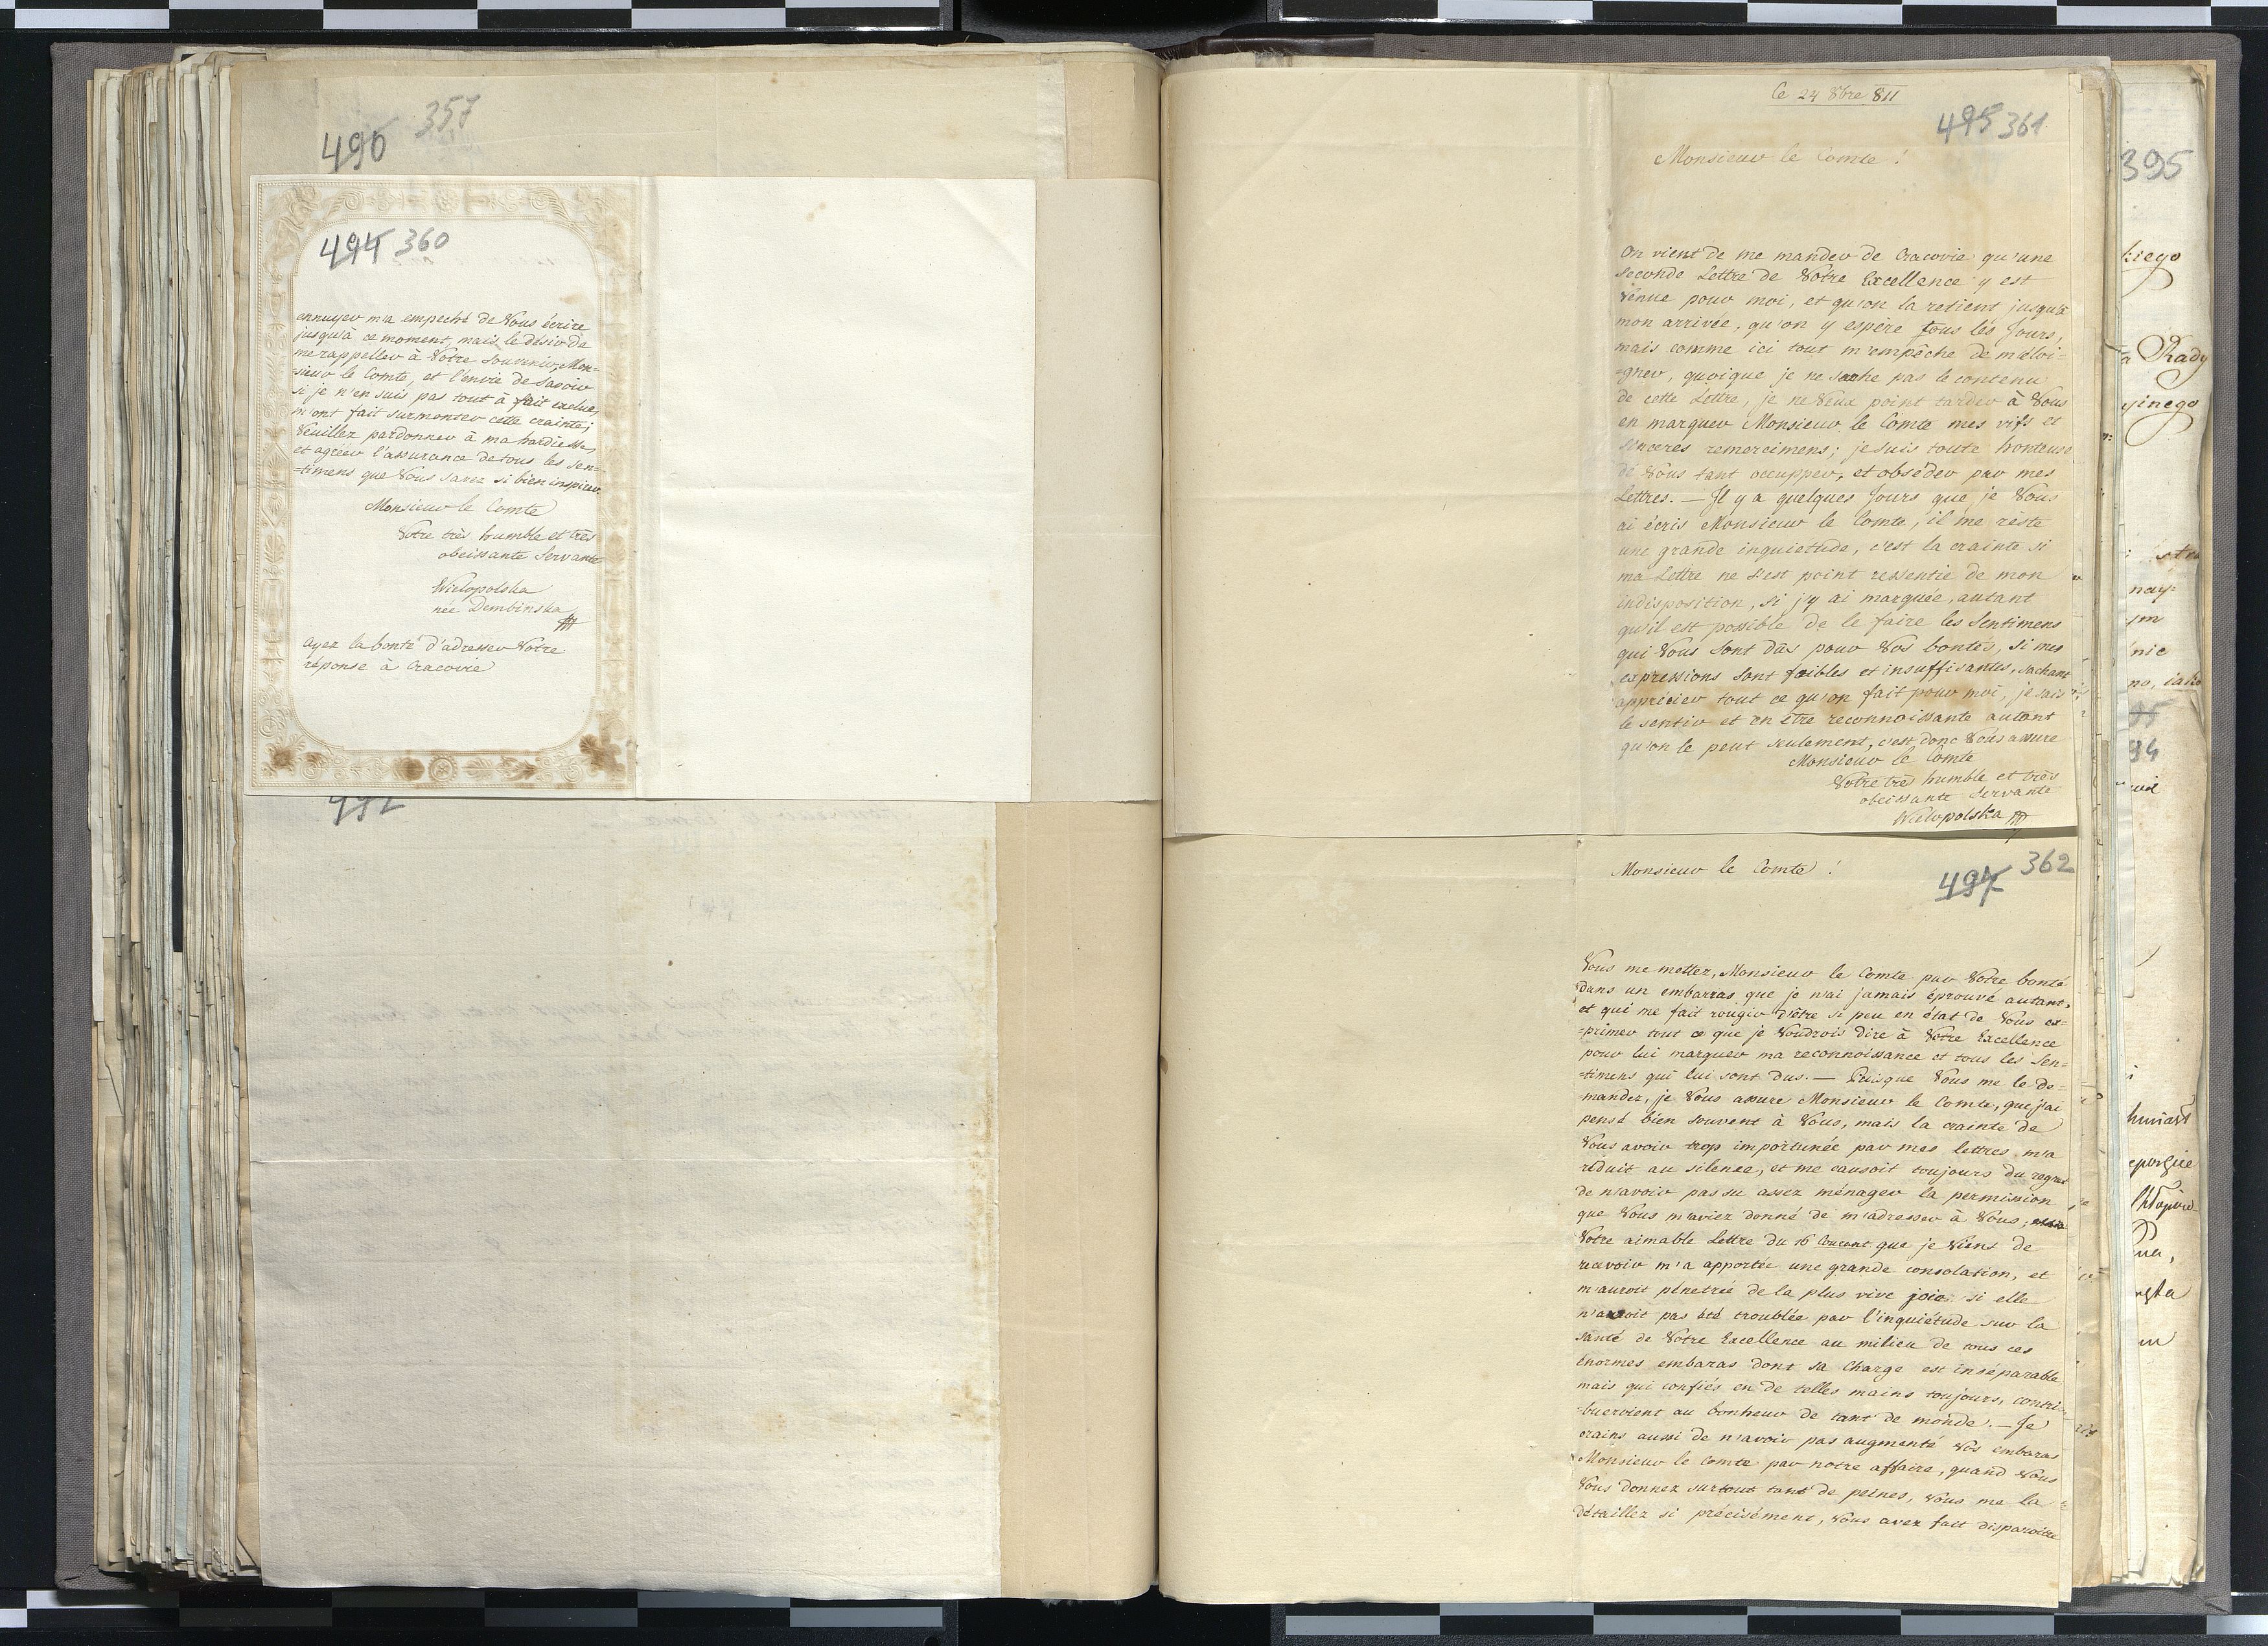 357
490
494 360
ennuyer m'a empeché de Vous écrire
jusqu'à ce moment, mais le désir de
me rappeller à Votre Souvenir, Mon=
=sieur le Comte, et l'envie de savoir
si je n'en suis pas tout à fait exclue,
m'ont fait surmonter cette crainte;
Veuillez pardonner à ma hardiesse,
et agréer l'assurance de tous les sen=
=timens que Vous savez si bien inspirer.
Monsieur le Comte
Votre très humble et très
obeissante Servante
Wielopolska
née Dembinska
Ayez la bonté d'adresser Votre
réponse à Cracovie
492
Ce 24 8bre 811
495 361
Monsieur le Comte !
On vient de me mander de Cracovie qu'une
seconde Lettre de Votre Excellence y est
Venue pour moi, et qu'on la retient jusqu'à
mon arrivée, qu'on y espère tous les Jours,
mais comme ici tout m'empêche de m'éloi=
=gner, quoique je ne sache pas le contenu
de cette Lettre, je ne Veux point tarder à Vous
en marquer Monsieur le Comte mes vifs et
sinceres remercimens; je suis toute honteuse
de Vous tant occupper, et obséder par mes
Lettres. — Il y a quelques Jours que je Vous
ai écris Monsieur le Comte, il me reste
une grande inquietude, c'est la crainte si
ma Lettre ne s'est point ressentie de mon
indisposition, si j'y ai marquée, autant
qu'il est possible de le faire les Sentimens
qui Vous sont dûs pour Vos bontés, si mes
expressions sont faibles et insuffisantes, sachant
apprécier tout ce qu'on fait pour moi, je sais
le sentir et en être reconnoissante autant
qu'on le peut seulement, c'est donc Vous assure
Monsieur le Comte
Votre très humble et très
obeissante Servante
Wielopolska
362
497
Monsieur le Comte !
Vous me mettez, Monsieur le Comte par Votre bonté
dans un embarras que je n'ai jamais éprouvé autant,
et qui me fait rougir d'être si peu en état de Vous ex=
=primer tout ce que je Voudrois dire à Votre Excellence
pour lui marquer ma reconnoissance et tous les Sen=
=timens qui lui sont dus. — Puisque Vous me le de=
mandez, je Vous assure Monsieur le Comte, que j'ai
pensé bien souvent à Vous, mais la crainte de
Vous avoir trop importunée par mes lettres m'a
réduit au silence, et me causoit toujours du regret
de n'avoir pas su assez ménager la permission
que Vous m'aviez donné de m'adresser à Vous;
Votre aimable Lettre du 16 Courant que je Viens de
recevoir m'a apportée une grande consolation, et
m'auroit pénetrée de la plus vive joie si elle
n'auroit pas été troublée par l'inquiétude sur la
santé de Votre Excellence au milieu de tous ces
énormes embaras dont sa Charge est inséparable
mais qui confiés en de telles mains toujours, contri=
=bueroient au bonheur de tant de monde. — Je
crains aussi de n'avoir pas augmenté Vos embaras
Monsieur le Comte par notre affaire, quand Vous
Vous donnez surtout tant de peines, Vous me la
détaillez si précisément, Vous avez fait disparoitre
395
kiego
Rady
yinego
nay
no, iako
95
94